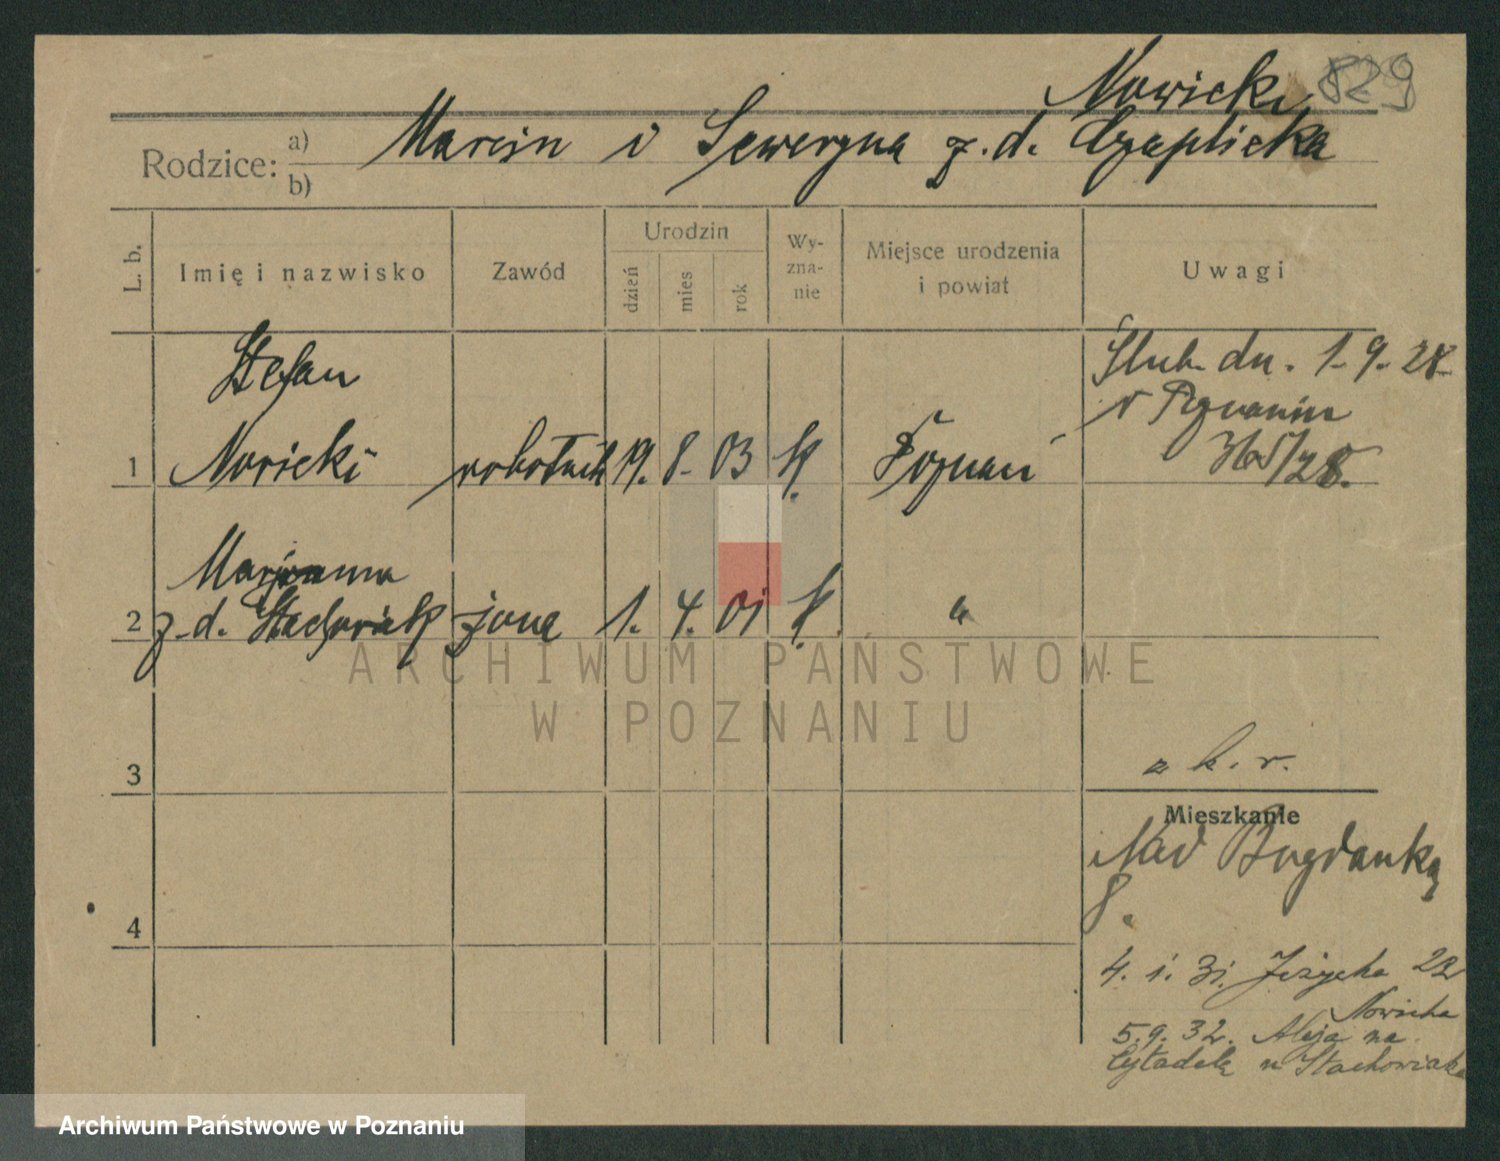 Nowicki 829
Rodzice: a) b) Marcin i Seweryna z. d. Czaplicka
L. b. Imię i nazwisko Zawód Urodzin dzień mies rok Wy-zna-nie Miejsce urodzenia i powiat Uwagi
Stefan
1 Nowicki robotnik 19. 8. 03 K. Poznań
Ślub dn. 1. 9. 28
w Poznaniu
/28.
Marjanna
2 z. d. Stachowiak żona 1. 4. 01 K. "
3
z k. r.
Mieszkanie
Nad Bogdanką
8.
4
4. 1. 31. Jeżycka 22
Nowicka
5.9.32. Aleja na
Cytadelę u Stachowiak
ARCHIWUM PAŃSTWOWE
W POZNANIU
Archiwum Państwowe w Poznaniu